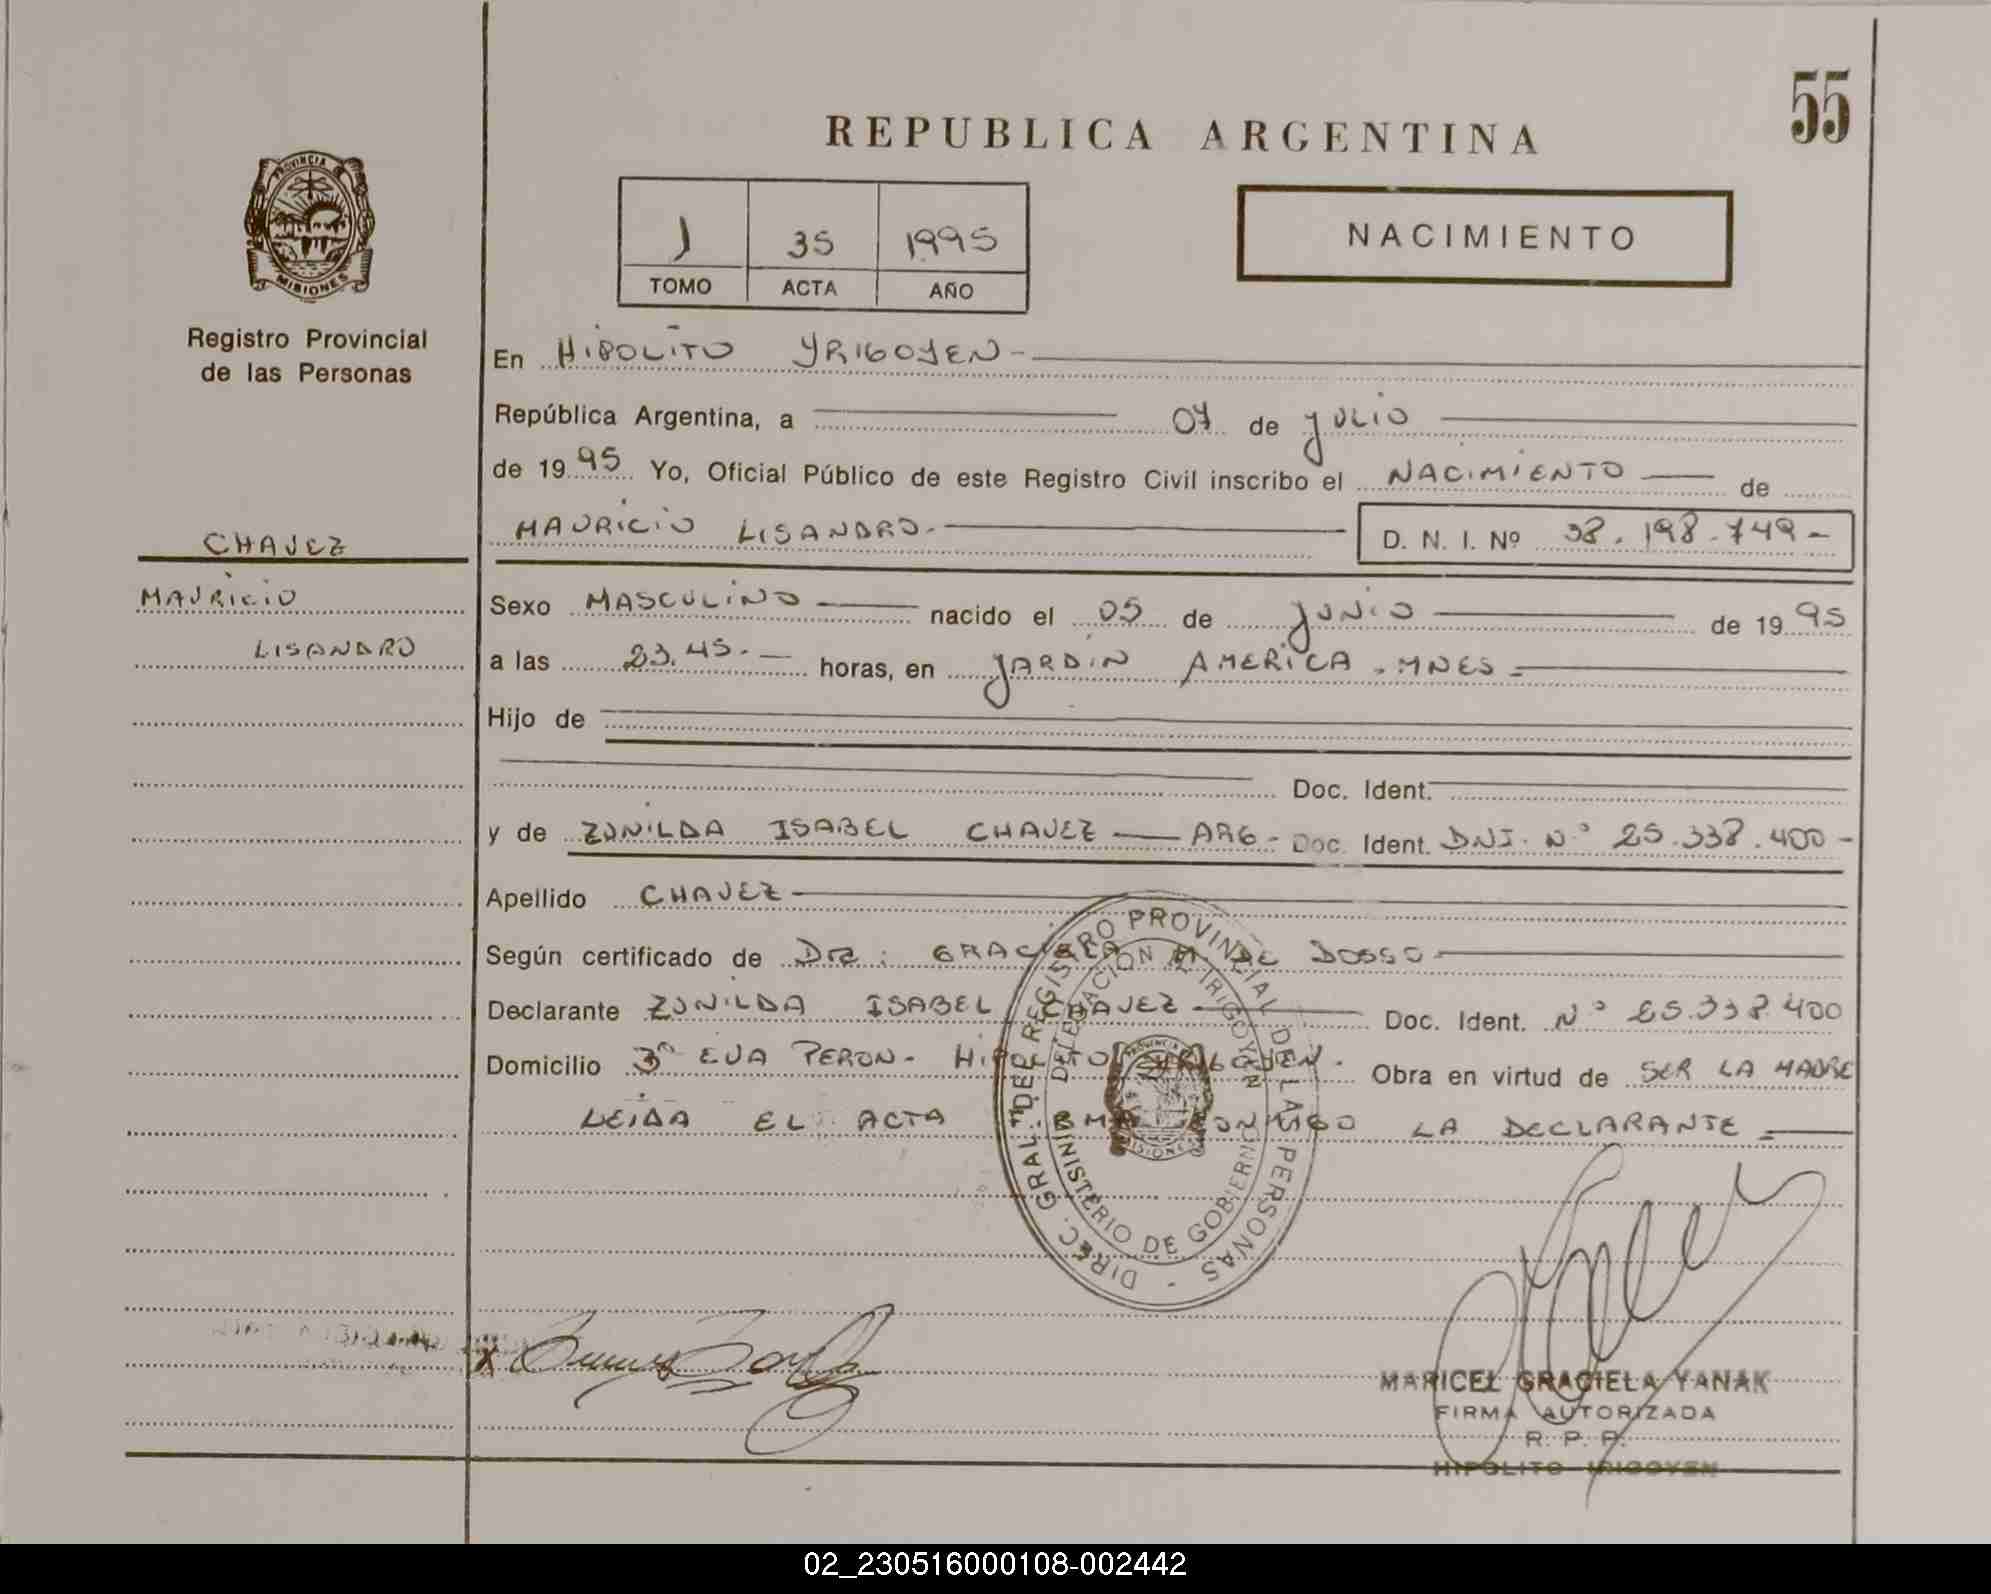 55
REPUBLICA ARGENTINA
PROVINCIA
MISIONES
1 35 1995
TOMO ACTA AÑO
NACIMIENTO
Registro Provincial
de las Personas
CHAVEZ
MAURICIO
LISANDRO
En HIPOLITO YRIGOYEN -
República Argentina, a 07 de JULIO
de 1995 Yo, Oficial Público de este Registro Civil inscribo el NACIMIENTO de
MAURICIO LISANDRO.- D. N. I. Nº 38.198.749-
Sexo MASCULINO nacido el 05 de JUNIO de 1995
a las 23.45.- horas, en JARDIN AMERICA .MNES-
Hijo de
Doc. Ident.
y de ZUNILDA ISABEL CHAVEZ — ARG- Doc. Ident. DNI. Nº 25.338.400-
Apellido CHAVEZ
Según certificado de DRA: GRACIELA DE DOSSO
Declarante ZUNILDA ISABEL CHAVEZ Doc. Ident. Nº 25.338400
Domicilio Bº EVA PERON- HIPOLITO YRIGOYEN. Obra en virtud de SER LA MADRE
LEIDA EL ACTA FIRMA CONMIGO LA DECLARANTE
DIREC. GRAL. DEL REGISTRO PROVINCIAL DE LAS PERSONAS -
DELEGACION H. IRIGOYEN
MINISTERIO DE GOBIERNO
PROVINCIA
MISIONES
X
MARICEL GRACIELA YANAK
FIRMA AUTORIZADA
R. P. P.
HIPOLITO IRIGOYEN
02_230516000108-002442